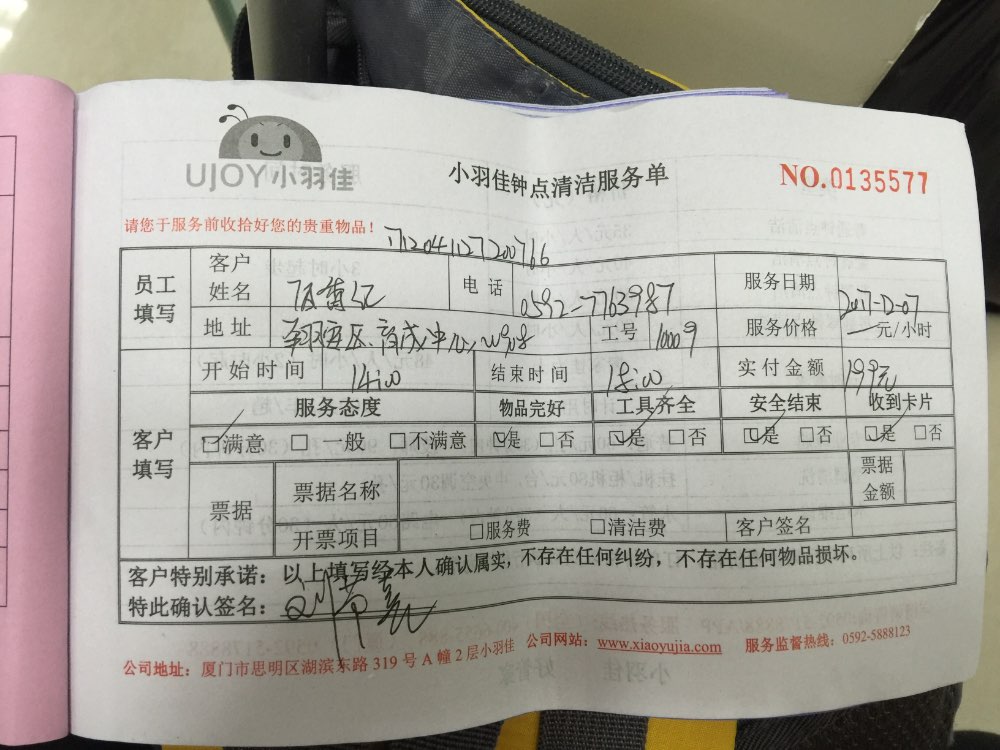 UJOY小羽佳
小羽佳钟点清洁服务单
NO.0135577
请您于服务前收拾好您的贵重物品！
员工填写
客户姓名
电话 0592-7763987
服务日期 2017-12-07
地址
工号 10009
服务价格 — 元/小时
开始时间 14:00
结束时间 18:00
实付金额 199元
客户填写
服务态度 物品完好 工具齐全 安全结束 收到卡片
☑满意 □一般 □不满意 ☑是 □否 ☑是 □否 ☑是 □否 ☑是 □否
票据
票据名称
票据金额
开票项目 □服务费 □清洁费 客户签名
客户特别承诺：以上填写经本人确认属实，不存在任何纠纷，不存在任何物品损坏。
特此确认签名：
公司地址：厦门市思明区湖滨东路 319 号 A 幢 2 层小羽佳 公司网站：www.xiaoyujia.com 服务监督热线：0592-5888123